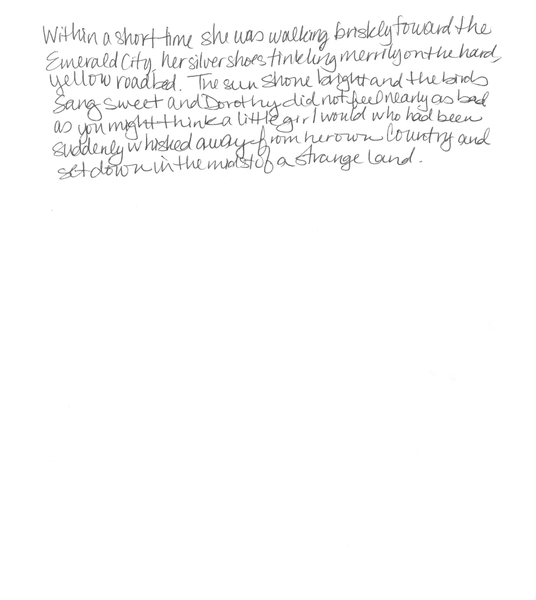 Within a short time she was walking briskly toward the
Emerald City, her silver shoes tinkling merrily on the hard,
yellow roadbed. The sun shone bright and the birds
Sang sweet and Dorothy did not feel nearly as bad
as you might think a little girl would who had been
suddenly whisked away from her own Country and
set down in the midst of a strange land.